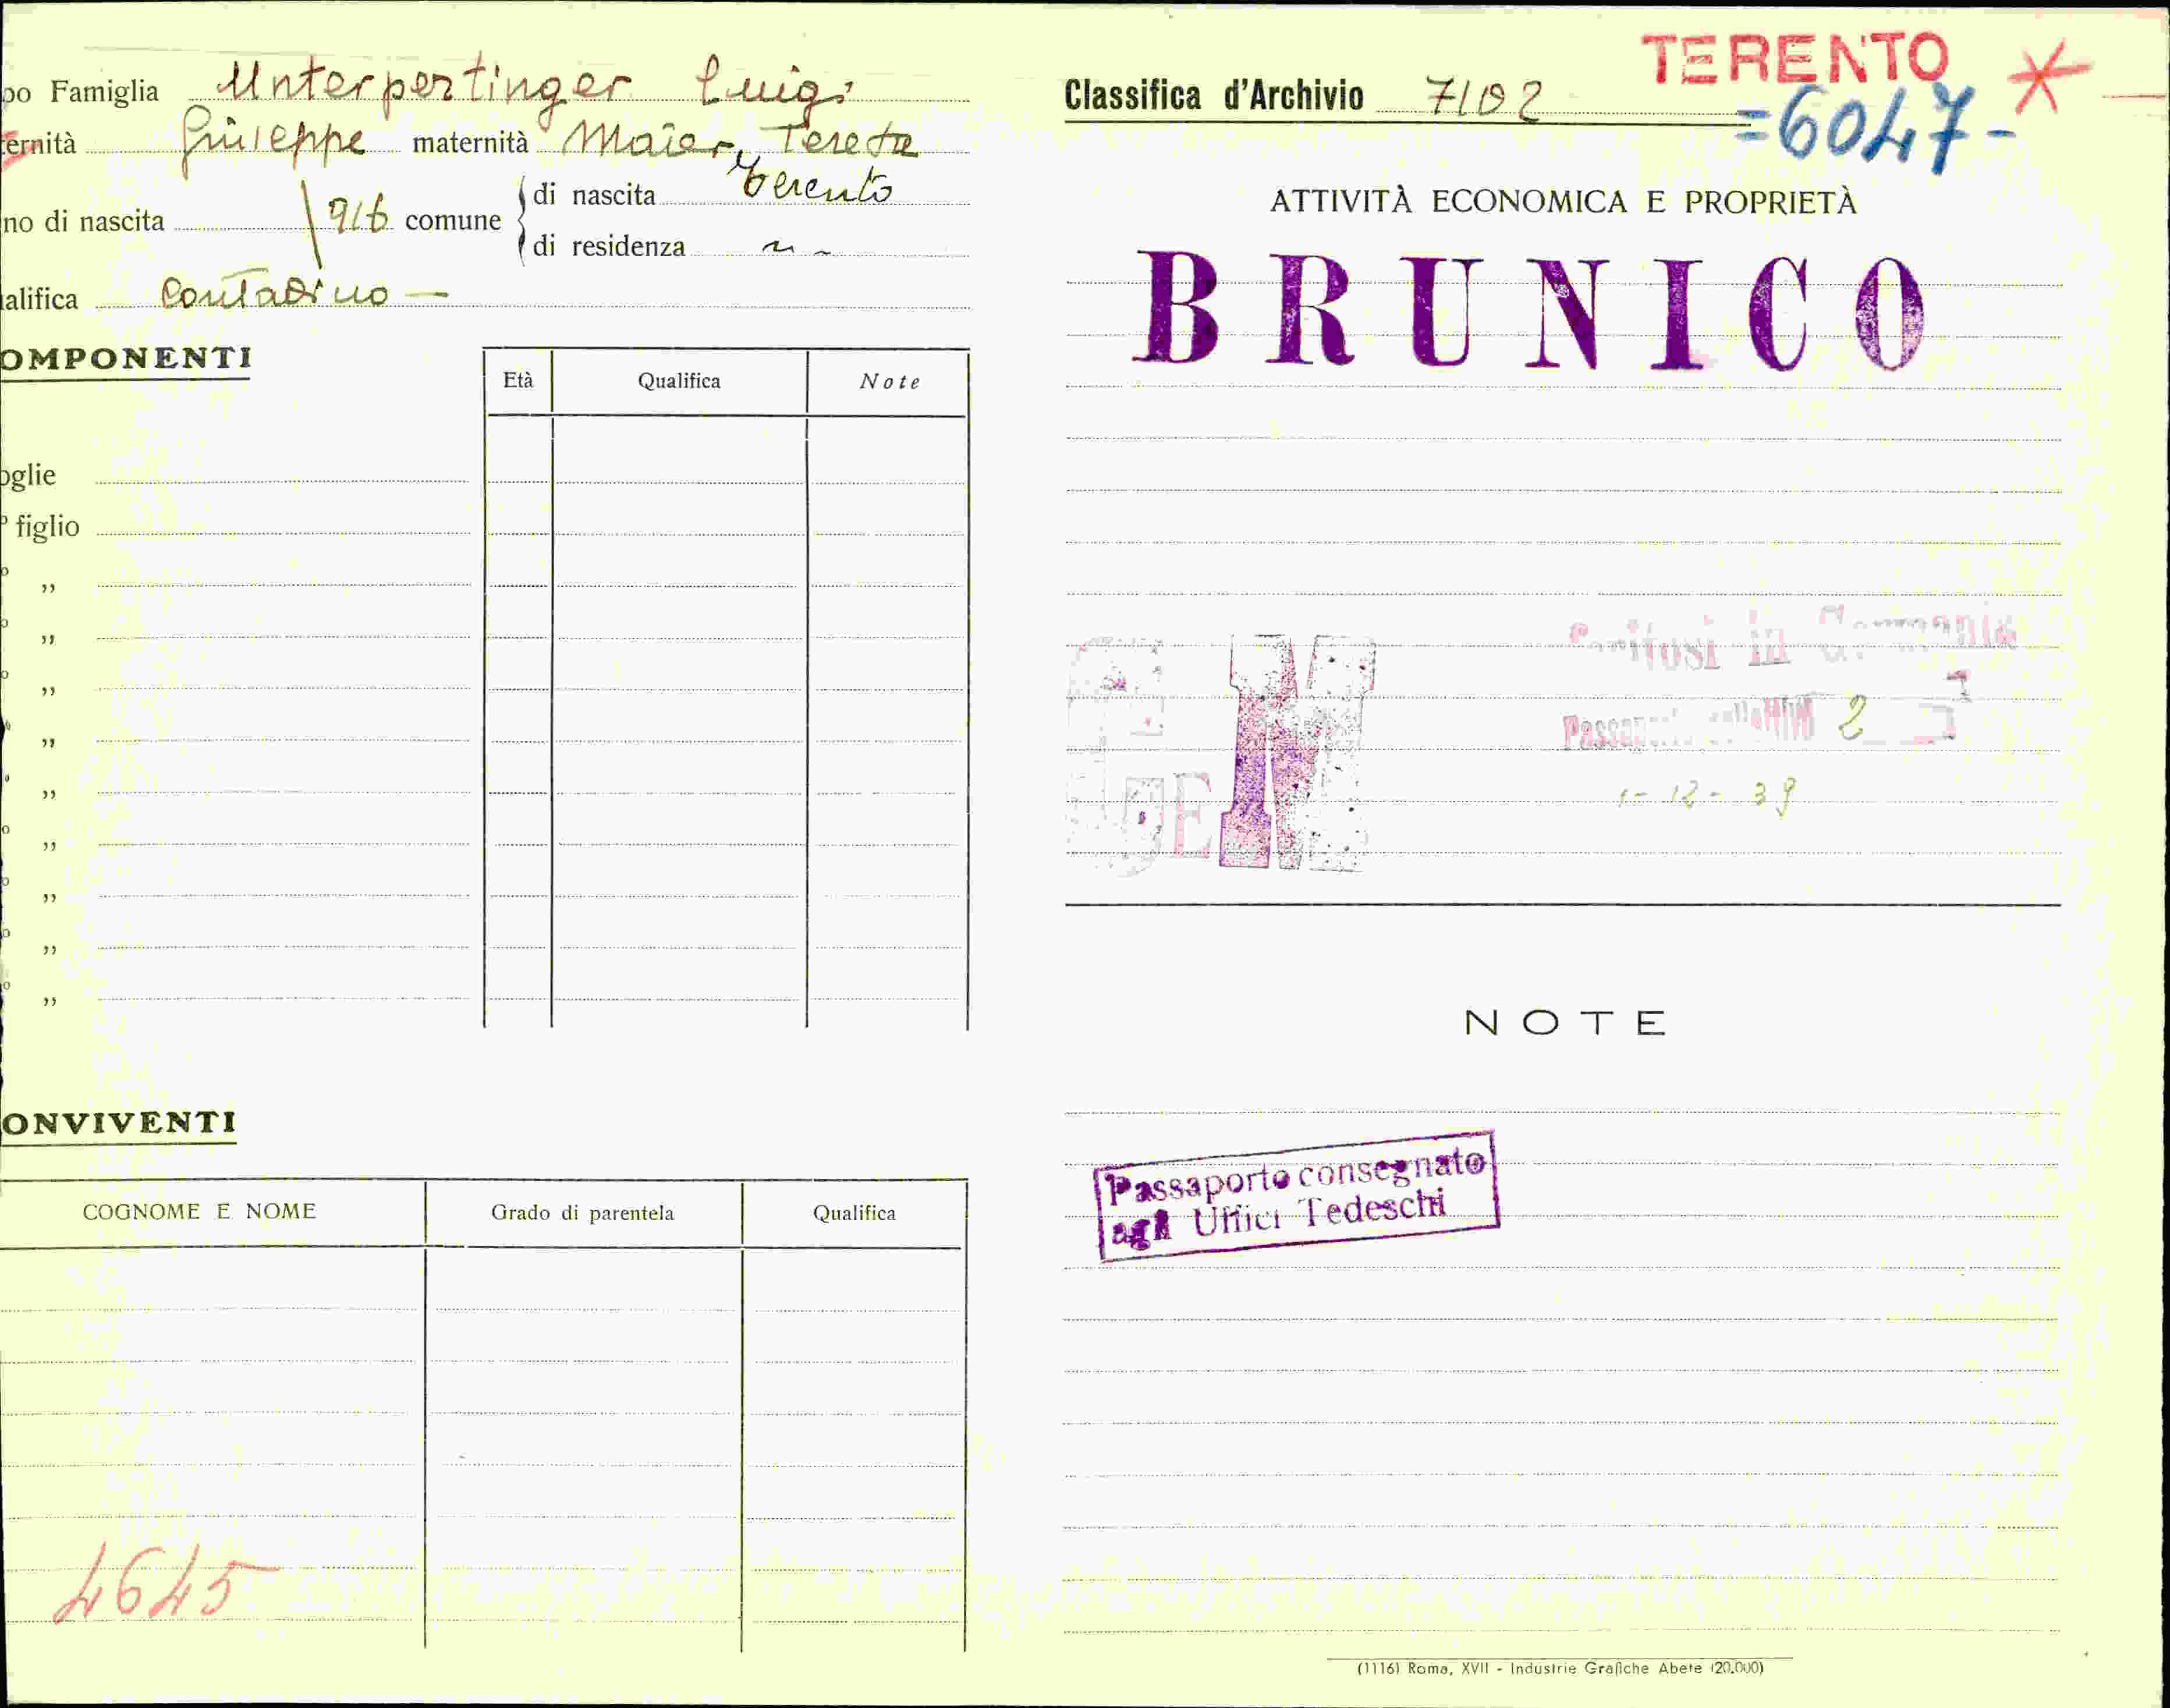 po Famiglia Unterpertinger Luigi
ernità Giuseppe maternità Maier, Teresa
no di nascita 1916 comune di nascita Terento
di residenza " "
alifica Contadino —
OMPONENTI
Età Qualifica Note
oglie
º figlio
"
"
"
"
"
"
"
"
"
ONVIVENTI
COGNOME E NOME Grado di parentela Qualifica
4645
TERENTO *
Classifica d'Archivio 7102
=6047-
ATTIVITÀ ECONOMICA E PROPRIETÀ
BRUNICO
in Germania
Passaporto collettivo 2
1-12-39
NOTE
Passaporto consegnato
agli Uffici Tedeschi
(1116) Roma, XVII - Industrie Grafiche Abete (20.000)